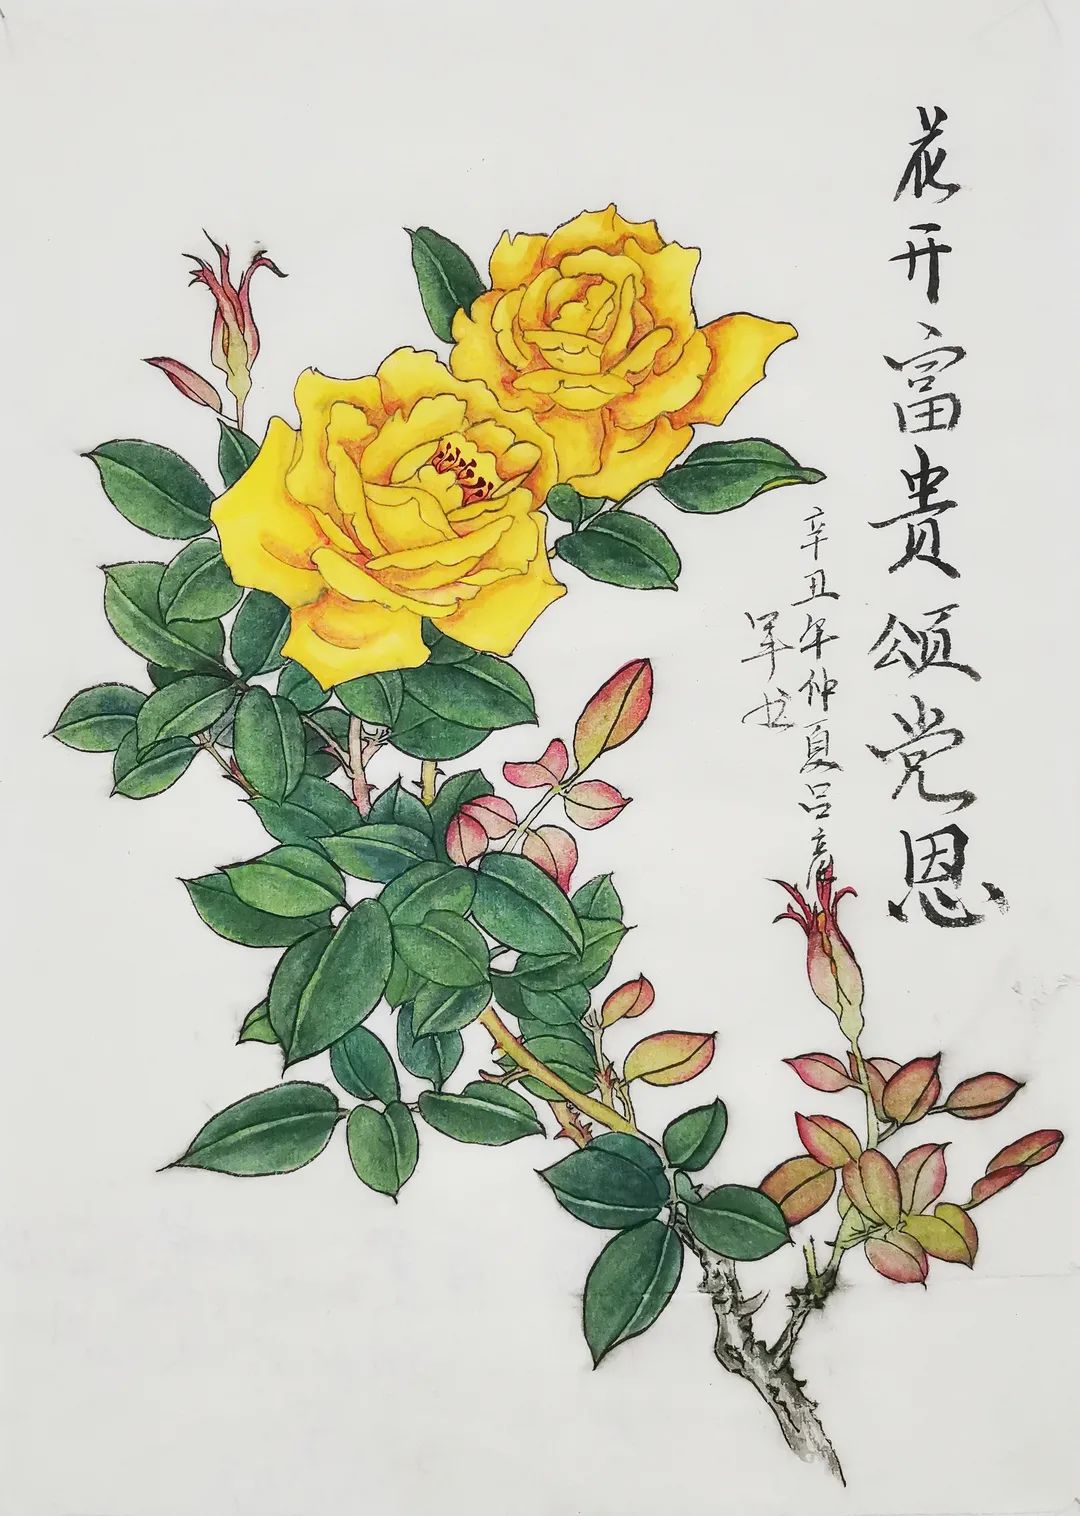 花开富贵颂党恩
辛丑年仲夏吕彦
军书